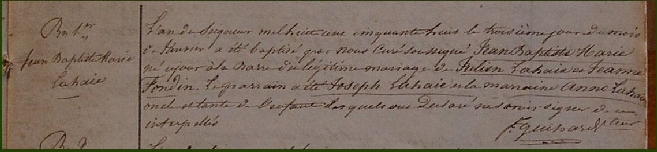 Bme
Jean Baptiste Marie
Lahaie
L'an du Seigneur mil huit cent cinquante huit le troisième jour du mois
de Janvier a été baptisé par nous Curé soussigné Jean Baptiste Marie
né ce jour à la Barre du légitime mariage de Julien Lahaie et Jeanne
Fondin. Le parrain a été Joseph Lahaie et la marraine Anne Lahaie
oncle et tante de l'enfant lesquels ont déclaré ne savoir signer de ce
interpellés